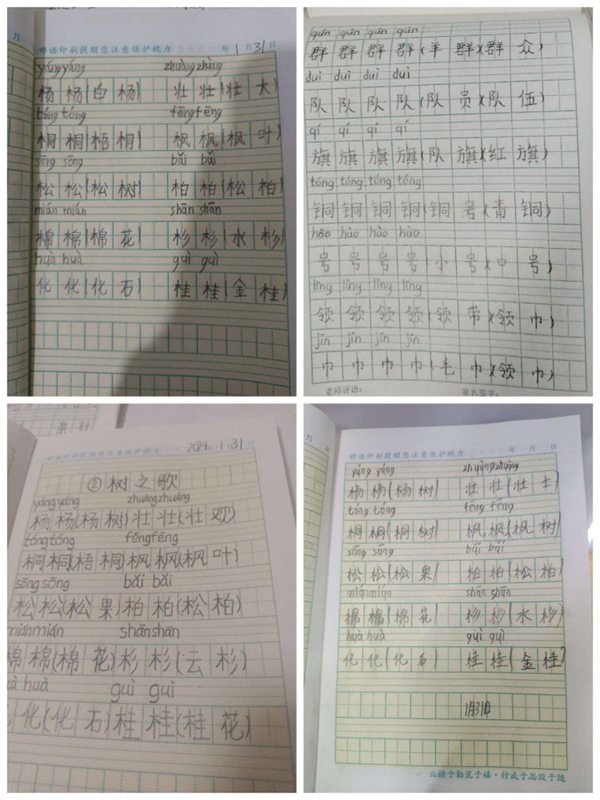 郑语印刷提醒您注意保护视力 年1月31日
yáng yáng zhuàng zhuàng
杨杨(白杨) 壮壮(壮大)
tóng tóng fēng fēng
桐桐(梧桐) 枫枫(枫叶)
sōng sōng bǎi bǎi
松松(松树) 柏柏(松柏)
mián mián shān shān
棉棉(棉花) 杉杉(水杉)
huà huà guì guì
化化(化石) 桂桂(金桂)
qún qún qún qún
群群群群(羊群)(群众)
duì duì duì duì
队队队队(队员)(队伍)
qí qí qí qí
旗旗旗旗(队旗)(红旗)
tóng tóng tóng tóng
铜铜铜铜(铜号)(青铜)
hào hào hào hào
号号号号(小号)(中号)
lǐng lǐng lǐng lǐng
领领领领(领带)(领巾)
jīn jīn jīn jīn
巾巾巾巾(毛巾)(领巾)
老师评语: 家长签字:
2024 1月31日
②树之歌
yáng yáng zhuàng zhuàng
杨杨(杨树)壮壮(壮观)
tóng tóng fēng fēng
桐桐(梧桐)枫枫(枫叶)
sōng sōng bǎi bǎi
松松(松果)柏柏(松柏)
mián mián shān shan
棉棉(棉花)杉杉(云杉)
huà guì guì
化(化石)桂桂(桂花)
年 月 日
yáng yáng zhuàng zhuàng
杨杨(杨树) 壮壮(壮士)
tóng tóng fēng fēng
桐桐(桐树) 枫枫(枫树)
sōng sōng bǎi bǎi
松松(松果) 柏柏(松柏)
mián mián shān shān
棉棉(棉花) 杉杉(水杉)
huà huà guì guì
化化(化石) 桂桂(金桂)
1月31日
业精于勤荒于嬉·行成于思毁于随